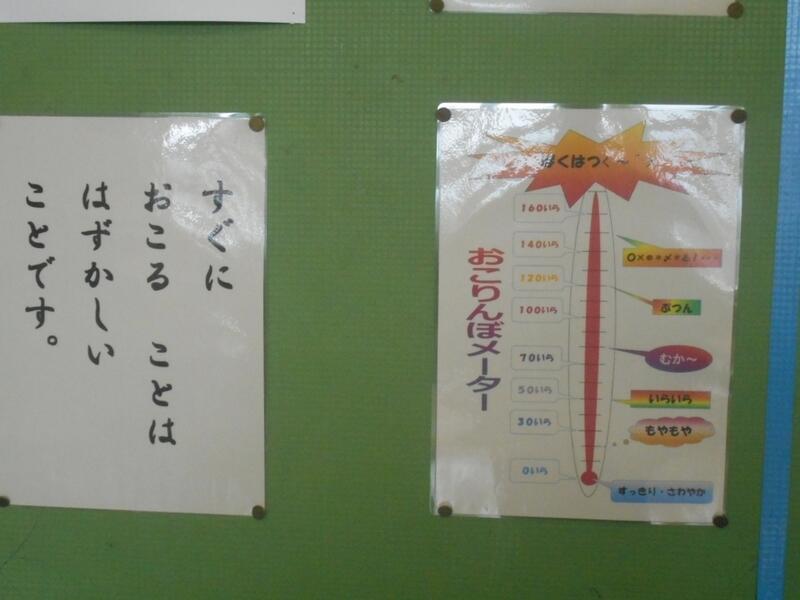 すぐに
おこる　ことは
はずかしい
ことです。
おこりんぼメーター
ばくはつく〜
160いら
140いら
120いら
100いら
70いら
50いら
30いら
0いら
ぷつん
むか〜
いらいら
もやもや
すっきり・さわやか